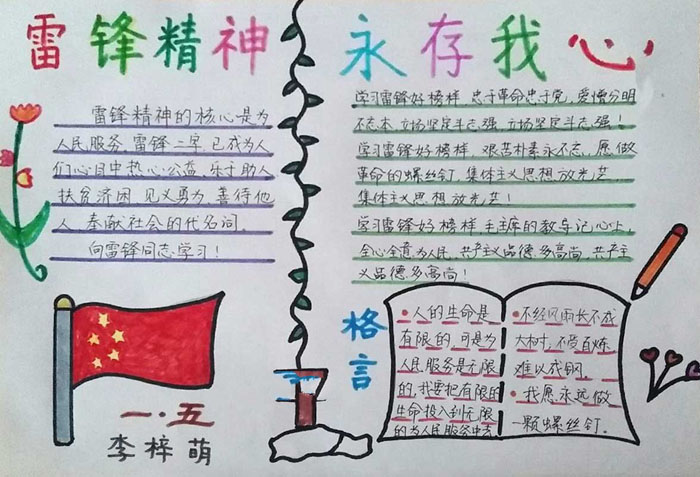 雷锋精神 永存我心
雷锋精神的核心是为
人民服务,雷锋二字,已成为人
们心目中热心公益,乐于助人
扶贫济困,见义勇为,善待他
人,奉献社会的代名词。
向雷锋同志学习!
学习雷锋好榜样,忠于革命忠于党,爱憎分明
不忘本,立场坚定斗志强,立场坚定斗志强!
学习雷锋好榜样,艰苦朴素永不忘,愿做
革命的螺丝钉,集体主义思想放光芒,
集体主义思想放光芒!
学习雷锋好榜样,毛主席的教导记心上,
全心全意为人民,共产主义品德多高尚,共产主
义品德多高尚!
格言
·人的生命是
有限的,可是为
人民服务是无限
的,我要把有限的
生命投入到无限
的为人民服务中去
·不经风雨,长不成
大树,不受百炼,
难以成钢。
·我愿永远做
一颗螺丝钉。
一·五
李梓萌